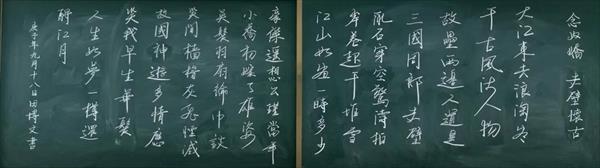 念奴嬌 赤壁懷古
大江東去浪淘盡
千古風流人物
故壘西邊人道是
三國周郎赤壁
亂石穿空驚濤拍
岸卷起千堆雪
江山如畫一時多少
豪傑遥想公瑾當年
小喬初嫁了雄姿
英發羽扇綸巾談
笑間檣櫓灰飛煙滅
故國神遊多情應
笑我早生華髮
人生如夢一樽還
酹江月
庚子年九月十八日田博文書